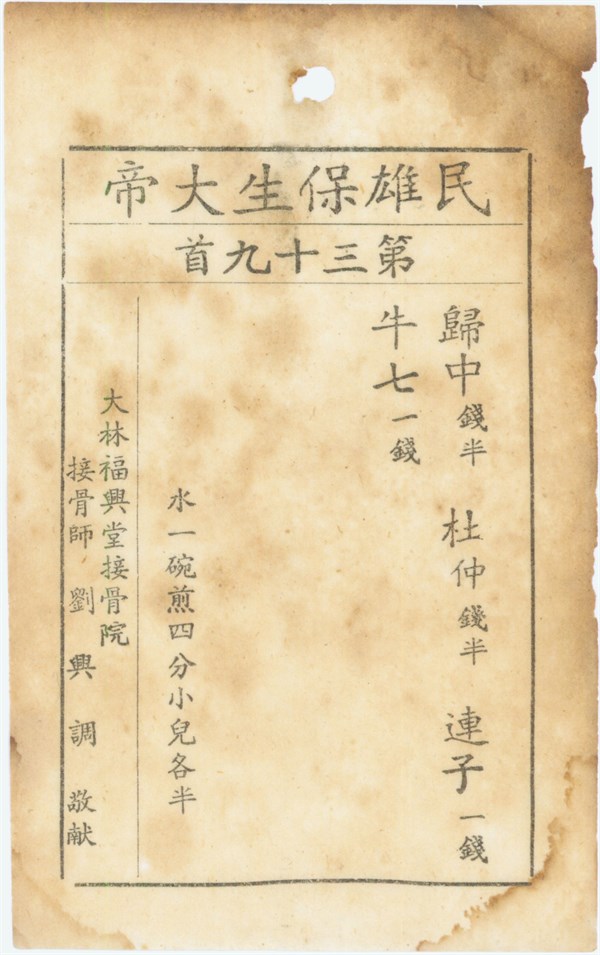 民雄保生大帝
第三十九首
歸中錢半 杜仲錢半 連子一錢
牛七一錢
水一碗煎四分小兒各半
大林福興堂接骨院
接骨師 劉興調 敬献